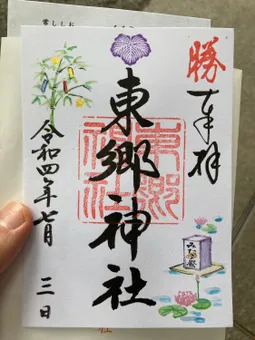 勝
奉拝
東郷神社
東郷神社
令和四年七月三日
みたま祭